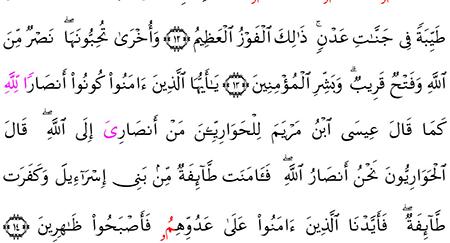 طَيِّبَةً فِى جَنَّـٰتِ عَدْنٍۢ ۚ ذَٰلِكَ ٱلْفَوْزُ ٱلْعَظِيمُ ﴿١٢﴾ وَأُخْرَىٰ تُحِبُّونَهَا ۖ نَصْرٌۭ مِّنَ
ٱللَّهِ وَفَتْحٌۭ قَرِيبٌۭ ۗ وَبَشِّرِ ٱلْمُؤْمِنِينَ ﴿١٣﴾ يَـٰٓأَيُّهَا ٱلَّذِينَ ءَامَنُوا۟ كُونُوٓا۟ أَنصَارًۭا لِّلَّهِ
كَمَا قَالَ عِيسَى ٱبْنُ مَرْيَمَ لِلْحَوَارِيِّـۧنَ مَنْ أَنصَارِىَ إِلَى ٱللَّهِ ۖ قَالَ
ٱلْحَوَارِيُّونَ نَحْنُ أَنصَارُ ٱللَّهِ ۖ فَـَٔامَنَت طَّآئِفَةٌۭ مِّنۢ بَنِىٓ إِسْرَٰٓءِيلَ وَكَفَرَت
طَّآئِفَةٌۭ ۖ فَأَيَّدْنَا ٱلَّذِينَ ءَامَنُوا۟ عَلَىٰ عَدُوِّهِمُۥ فَأَصْبَحُوا۟ ظَـٰهِرِينَ ﴿١٤﴾